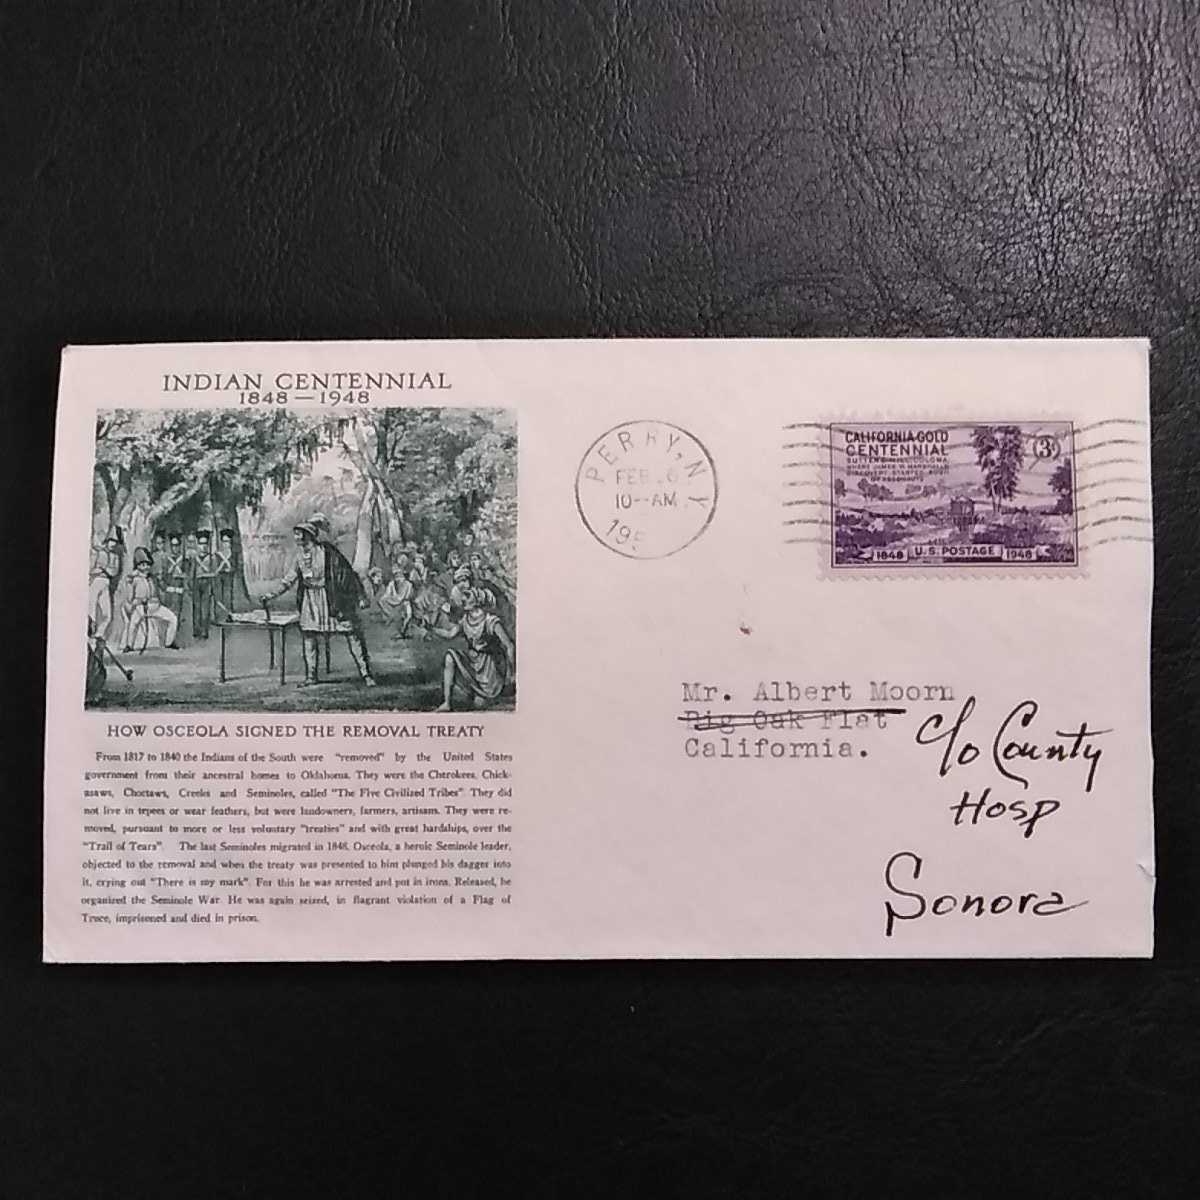 INDIAN CENTENNIAL
1848—1948
HOW OSCEOLA SIGNED THE REMOVAL TREATY
From 1817 to 1840 the Indians of the South were "removed" by the United States
government from their ancestral homes to Oklahoma. They were the Cherokees, Chick-
asaws, Choctaws, Creeks and Seminoles, called "The Five Civilized Tribes". They did
not live in tepees or wear feathers, but were landowners, farmers, artisans. They were re-
moved, pursuant to more or less voluntary "treaties" and with great hardships, over the
"Trail of Tears". The last Seminoles migrated in 1848. Osceola, a heroic Seminole leader,
objected to the removal and when the treaty was presented to him plunged his dagger into
it, crying out "There is my mark". For this he was arrested and put in irons. Released, he
organized the Seminole War. He was again seized, in flagrant violation of a Flag of
Truce, imprisoned and died in prison.
PERRY, N.Y.
FEB 6
10--AM
195
CALIFORNIA GOLD
CENTENNIAL
SUTTER'S MILL, COLOMA,
WHERE JAMES W. MARSHALL'S
DISCOVERY STARTED RUSH
OF ARGONAUTS
3¢
1848 U.S. POSTAGE 1948
Mr. Albert Moorn
Big Oak Flat
California.
c/o County
Hosp
Sonora